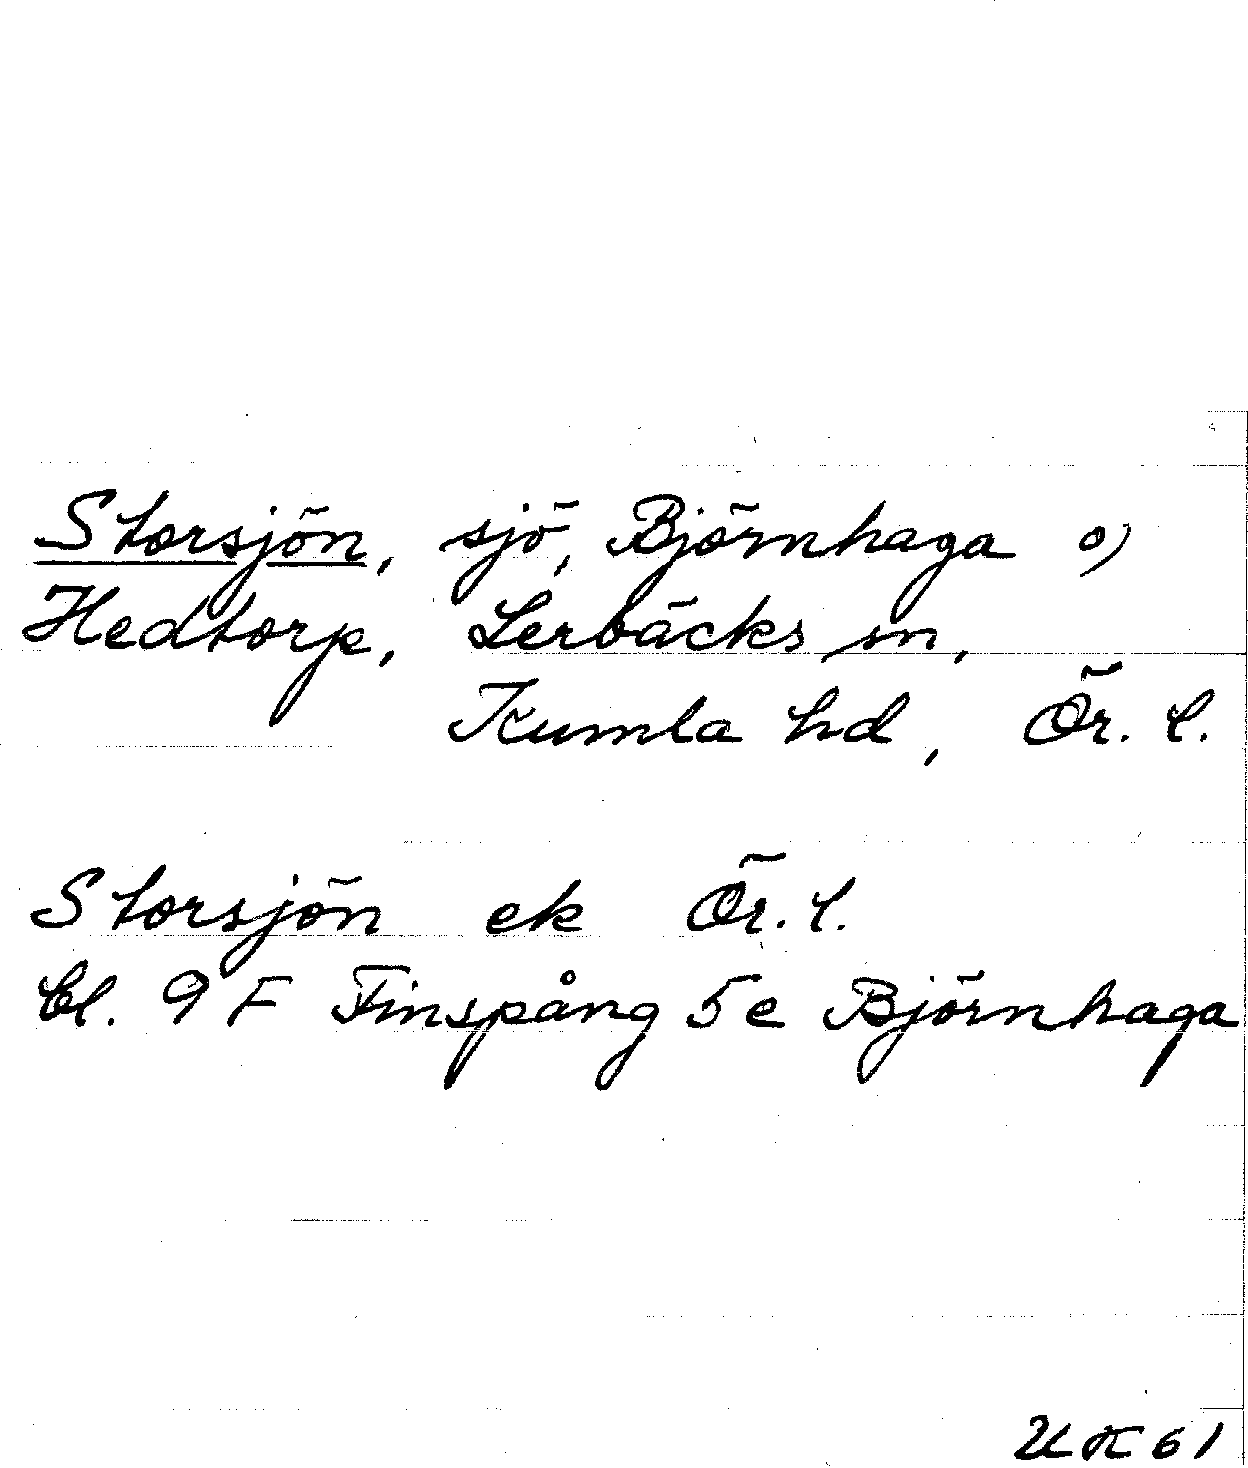 Storsjön, sjö, Björnhaga o)
Hedtorp, Lerbäcks sn,
Kumla hd, Ör. l.
Storsjön ek Ör. l.
Bl. 9 F Finspång 5 e Björnhaga
UK 61